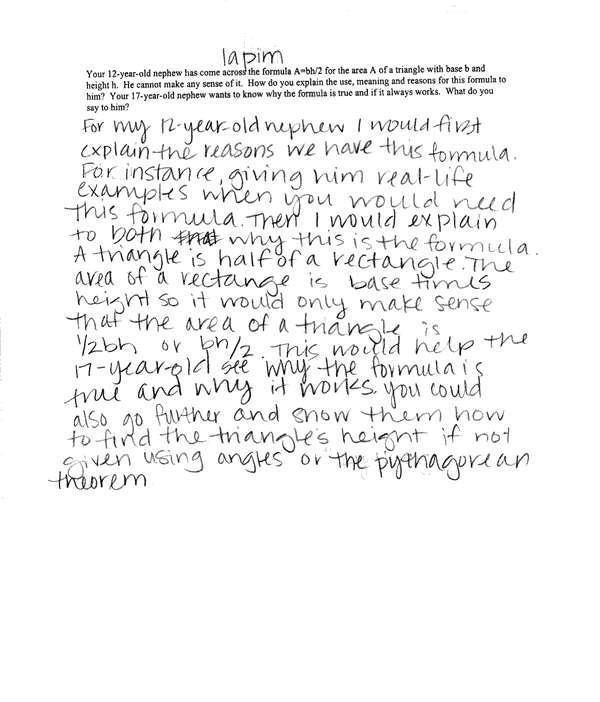 lapim
Your 12-year-old nephew has come across the formula A=bh/2 for the area A of a triangle with base b and
height h. He cannot make any sense of it. How do you explain the use, meaning and reasons for this formula to
him? Your 17-year-old nephew wants to know why the formula is true and if it always works. What do you
say to him?
For my 12-year-old nephew I would first
explain the reasons we have this formula.
For instance, giving him real-life
examples when you would need
this formula. Then I would explain
to both that why this is the formula.
A triangle is half of a rectangle. The
area of a rectange is base times
height so it would only make sense
that the area of a triangle is
1/2bh or bh/2. This would help the
17-year-old see why the formula is
true and why it works. You could
also go further and show them how
to find the triangle's height if not
given using angles or the pythagorean
theorem